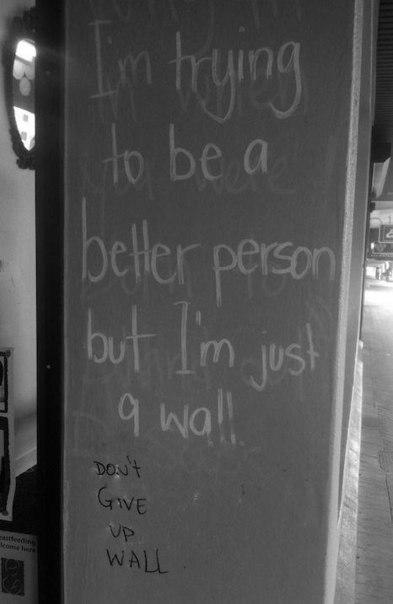 I'm trying
to be a
better person
but I'm just
a wall.
DON'T
GIVE
UP
WALL
eastfeeding
lcome here